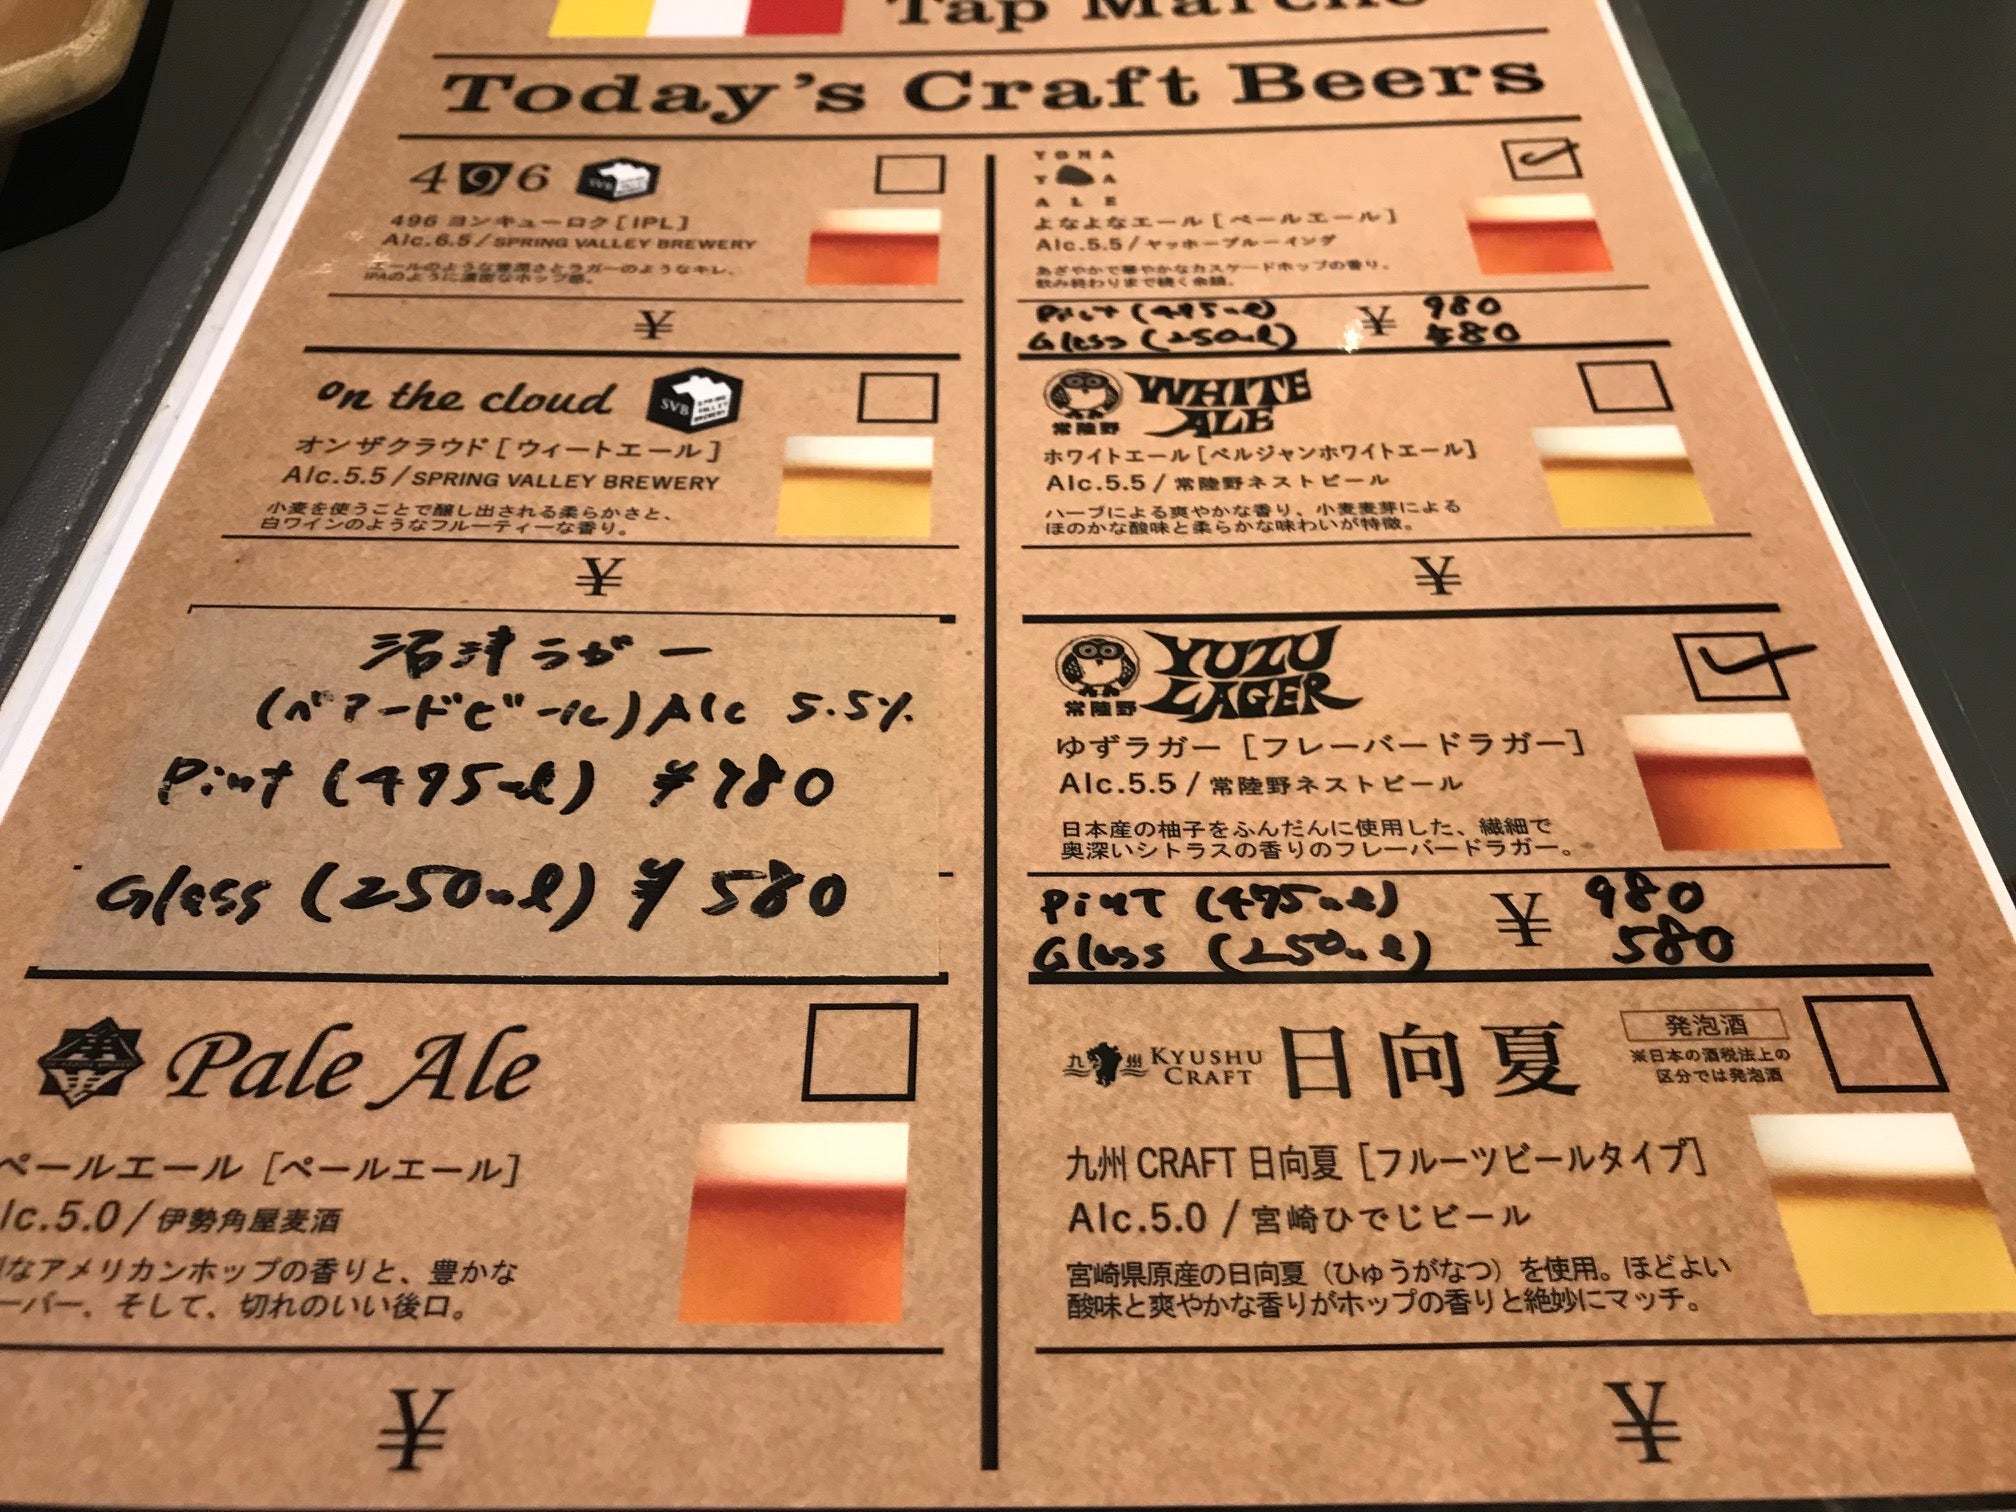 Tap Marché
Today's Craft Beers
496
SVB
496 ヨンキューロク [IPL]
Alc.6.5 / SPRING VALLEY BREWERY
エールのような豊潤さとラガーのようなキレ、
IPAのように濃密なホップ感。
¥
on the cloud
SVB SPRING VALLEY BREWERY
オンザクラウド [ウィートエール]
Alc.5.5 / SPRING VALLEY BREWERY
小麦を使うことで醸し出される柔らかさと、
白ワインのようなフルーティーな香り。
¥
沼津ラガー
(ベアードビール) Alc 5.5%
Pint (475ml) ¥980
Glass (250ml) ¥580
Pale Ale
ペールエール [ペールエール]
lc.5.0 / 伊勢角屋麦酒
なアメリカンホップの香りと、豊かな
ーバー、そして、切れのいい後口。
¥
YONA
YONA
ALE
よなよなエール [ペールエール]
Alc.5.5 / ヤッホーブルーイング
あざやかで華やかなカスケードホップの香り。
飲み終わりまで続く余韻。
Pint (475ml) ¥ 980
Glass (250ml) 580
常陸野
WHITE
ALE
ホワイトエール [ベルジャンホワイトエール]
Alc.5.5 / 常陸野ネストビール
ハーブによる爽やかな香り、小麦麦芽による
ほのかな酸味と柔らかな味わいが特徴。
¥
常陸野
YUZU
LAGER
ゆずラガー [フレーバードラガー]
Alc.5.5 / 常陸野ネストビール
日本産の柚子をふんだんに使用した、繊細で
奥深いシトラスの香りのフレーバードラガー。
Pint (475ml) ¥ 980
Glass (250ml) 580
九州 KYUSHU
CRAFT
日向夏
発泡酒
※日本の酒税法上の
区分では発泡酒
九州 CRAFT 日向夏 [フルーツビールタイプ]
Alc.5.0 / 宮崎ひでじビール
宮崎県原産の日向夏（ひゅうがなつ）を使用。ほどよい
酸味と爽やかな香りがホップの香りと絶妙にマッチ。
¥